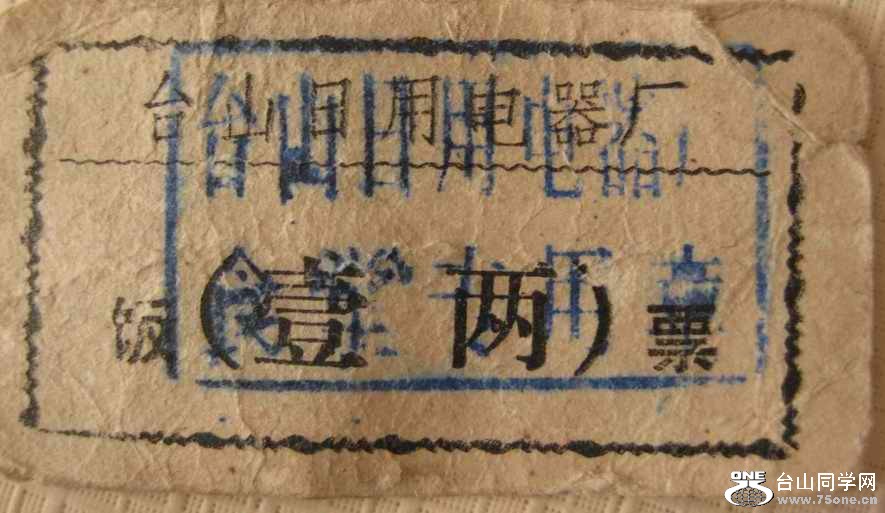 台山日用电器厂
饭（壹两）票
台山日用电器厂
食堂专用章
ONE 台山同学网
www.75one.cn